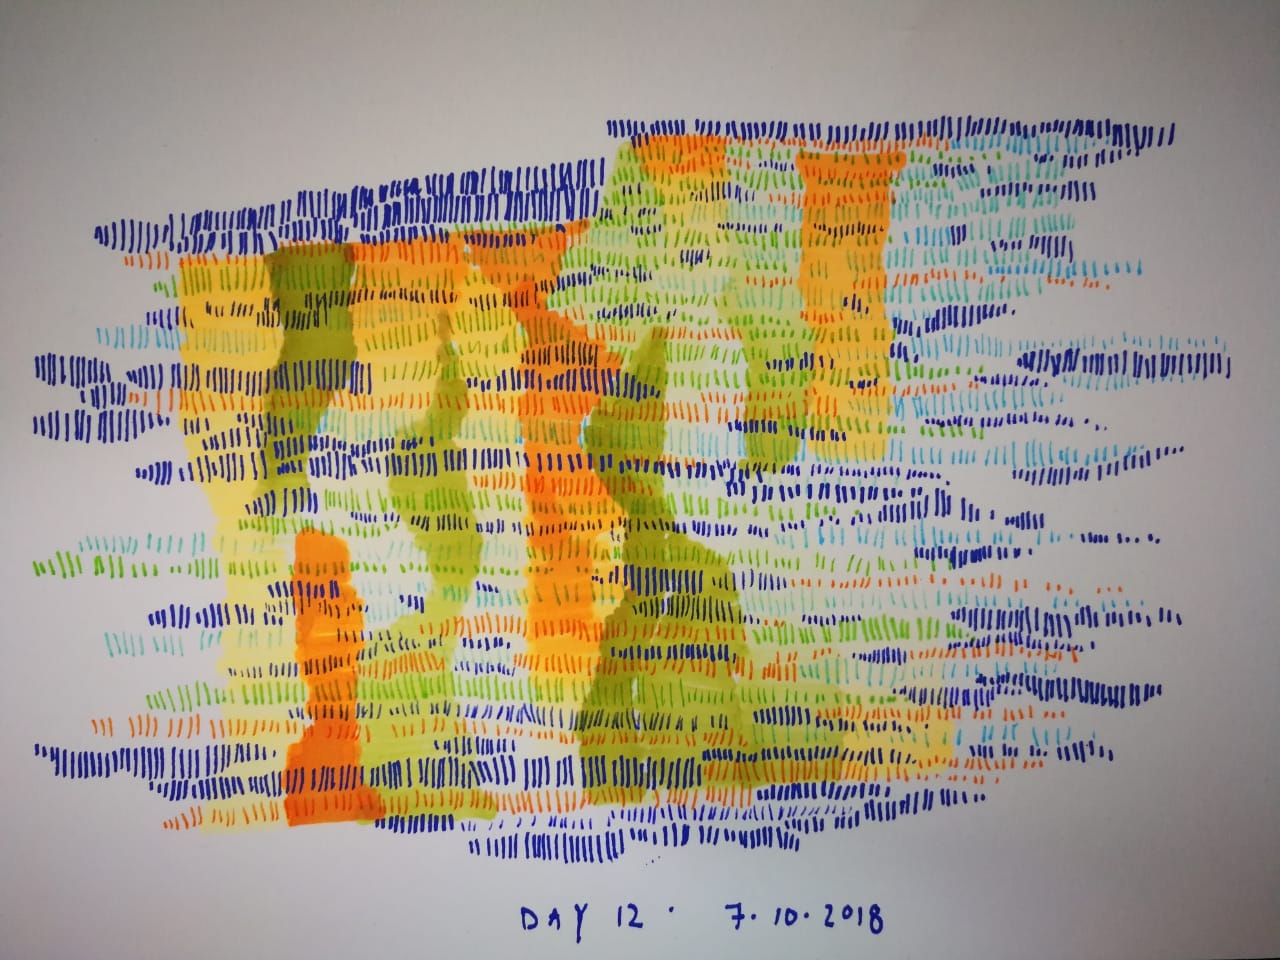 DAY 12. 7.10.2018